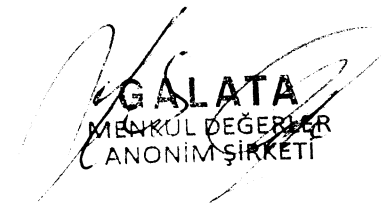 GALATA
MENKUL DEĞERLER
ANONİM ŞİRKETİ